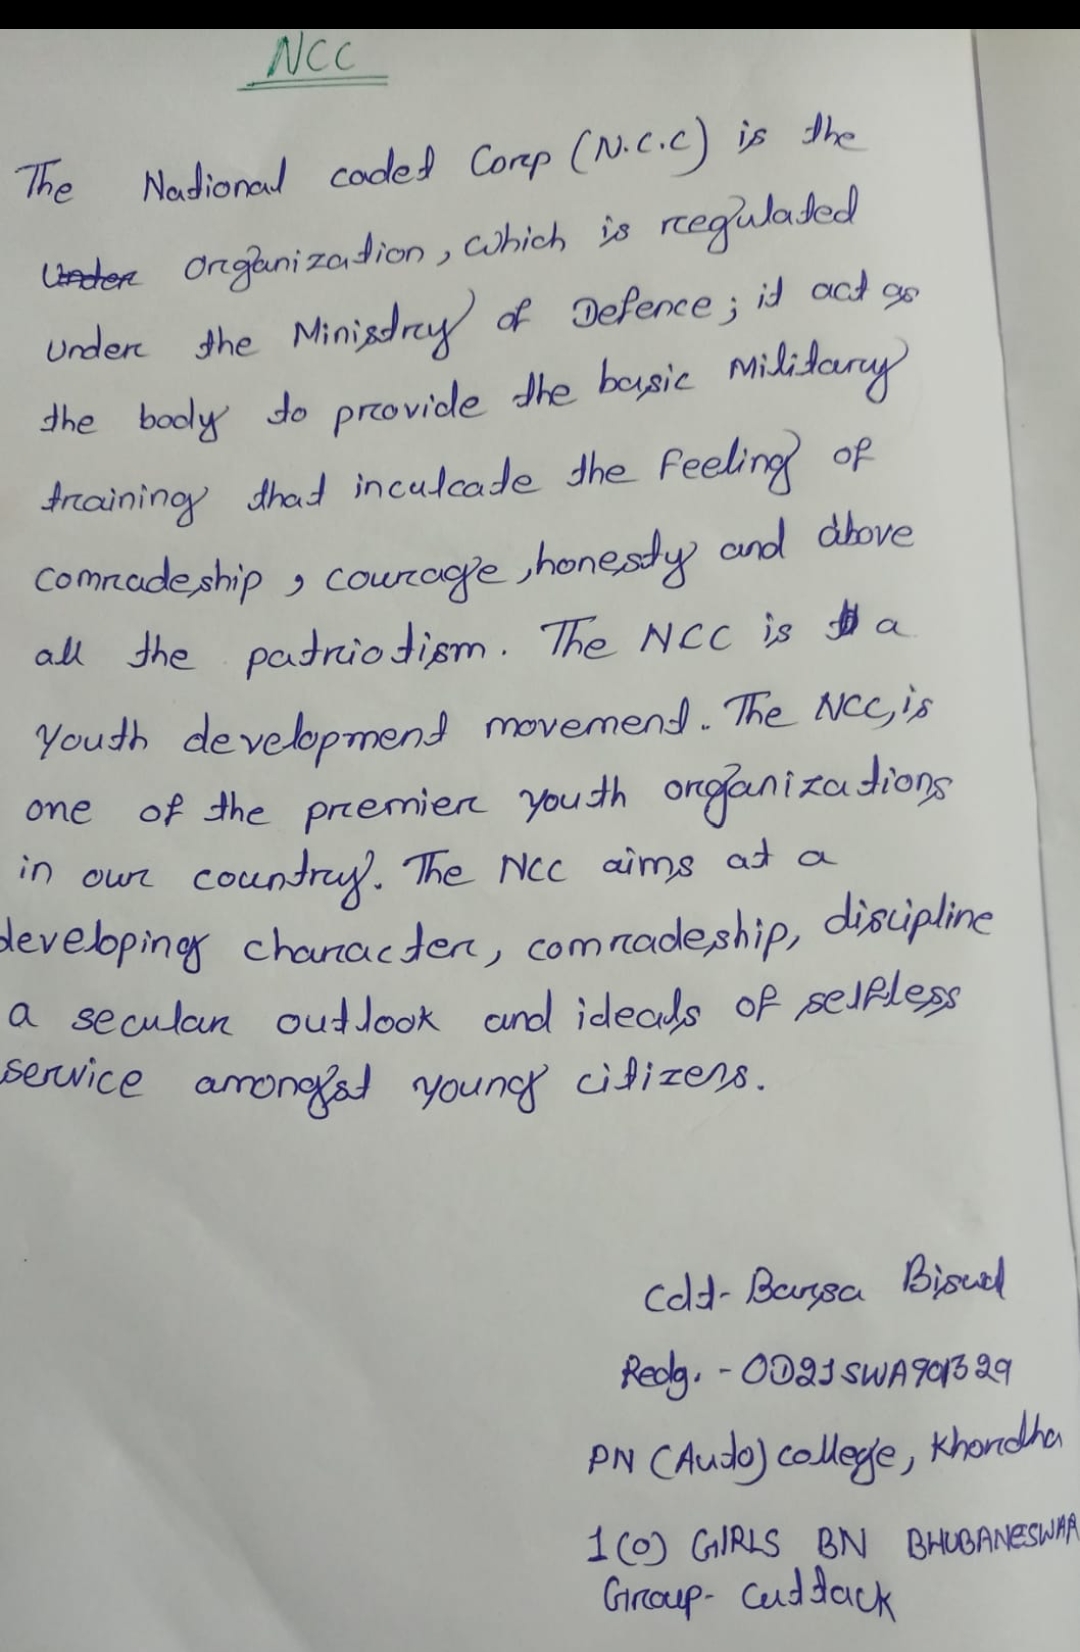 NCC
The National caded Corp (N.C.C) is the
Under organization, which is regulated
under the Ministry of Defence; it act as
the body to provide the basic Military
training that inculcade the feeling of
comradeship, courage, honesty and above
all the patriotism. The NCC is a
youth development movement. The NCC, is
one of the premier youth organizations
in our country. The NCC aims at a
developing character, comradeship, discipline
a secular outlook and ideals of selfless
service amongst young citizens.
Cdt- Barsa Biswal
Redg. - OD21SWA901329
PN (Auto) college, Khordha
1(O) GIRLS BN BHUBANESWAR
Group- Cuttack